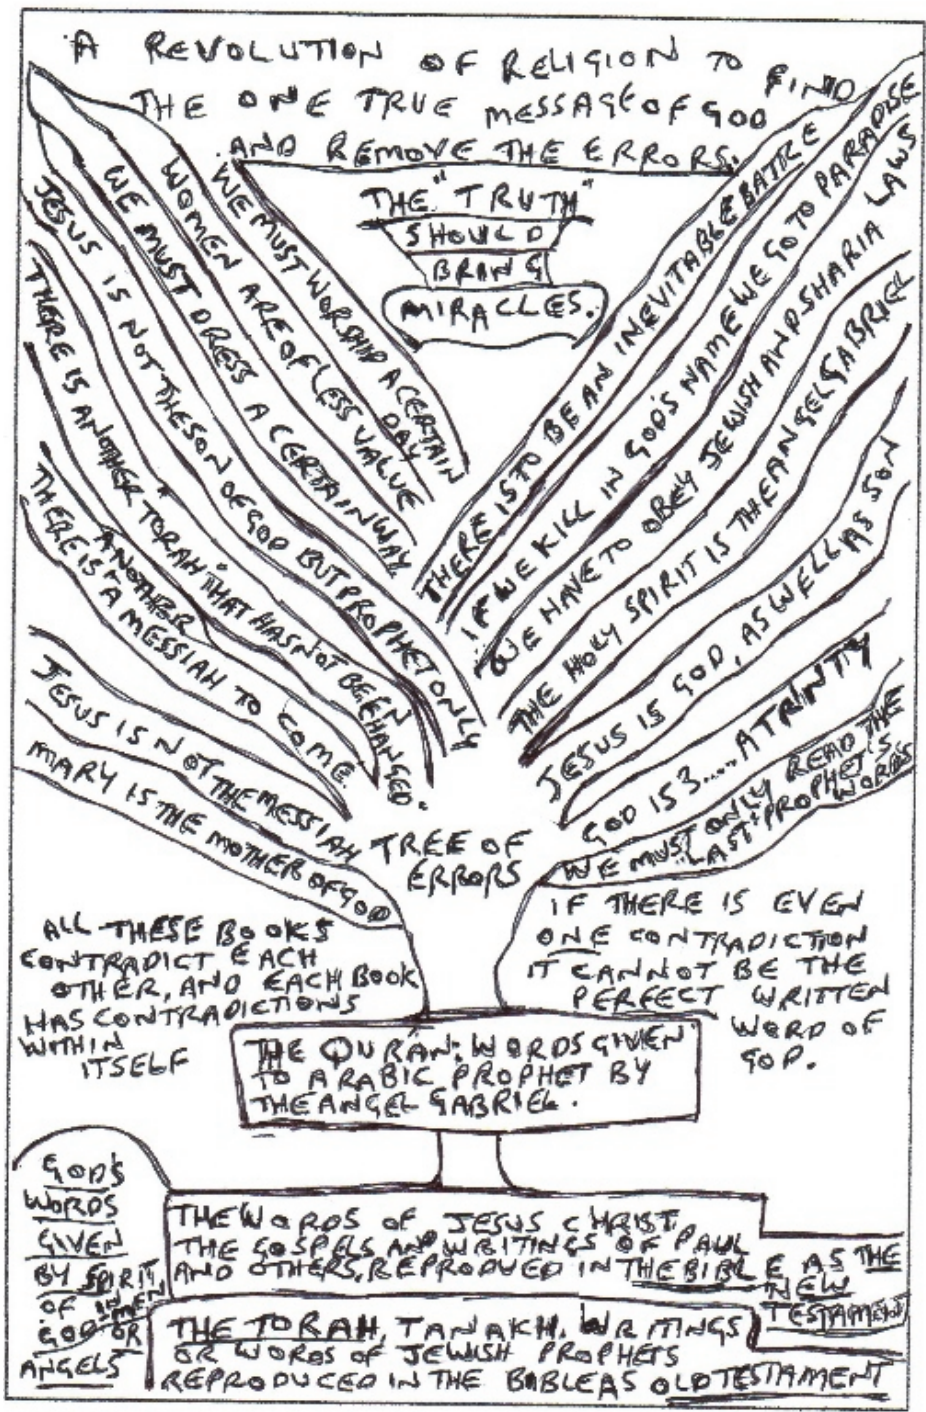 A REVOLUTION OF RELIGION TO FIND
THE ONE TRUE MESSAGE OF GOD
AND REMOVE THE ERRORS.
THE "TRUTH"
SHOULD
BRING
MIRACLES.
WE MUST WORSHIP A CERTAIN
DAY
WOMEN ARE OF LESS VALUE
WE MUST DRESS A CERTAIN WAY
JESUS IS NOT THE SON OF GOD BUT PROPHET ONLY
THERE IS ANOTHER "TORAH" THAT HAS NOT BEEN
CHANGED"
ANOTHER
THERE IS "A MESSIAH TO COME
JESUS IS NOT THE MESSIAH
MARY IS THE MOTHER OF GOD
THERE IS TO BE AN INEVITABLE BATTLE
IF WE KILL IN GOD'S NAME WE GO TO PARADISE
WE HAVE TO OBEY JEWISH AND SHARIA LAWS
THE HOLY SPIRIT IS THE ANGEL GABRIEL
JESUS IS GOD, AS WELL AS SON
GOD IS 3..... A TRINTY
WE MUST ONLY READ THE
"LAST" PROPHET'S
WORDS
TREE OF
ERRORS
ALL THESE BOOKS
CONTRADICT EACH
OTHER, AND EACH BOOK
HAS CONTRADICTIONS
WITHIN
ITSELF
IF THERE IS EVEN
ONE CONTRADICTION
IT CANNOT BE THE
PERFECT WRITTEN
WORD OF
GOD.
THE QURÁN: WORDS GIVEN
TO ARABIC PROPHET BY
THE ANGEL GABRIEL.
GOD'S
WORDS
GIVEN
BY SPIRIT,
OF IN MEN
GOD OR
ANGELS
THE WORDS OF JESUS CHRIST,
THE GOSPELS AND WRITINGS OF PAUL
AND OTHERS, REPRODUCED IN THE BIBLE AS THE
NEW
TESTAMENT
THE TORAH, TANAKH, WRITINGS
OR WORDS OF JEWISH PROPHETS
REPRODUCED IN THE BIBLE AS OLD TESTAMENT